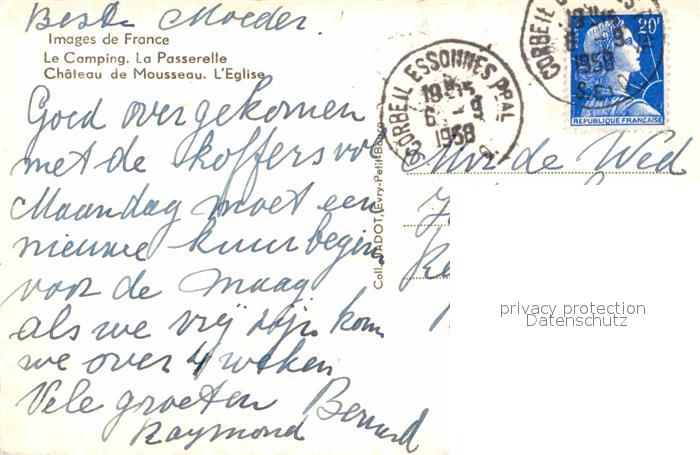 Beste Moeder.
Images de France
Le Camping. La Passerelle
Château de Mousseau. L'Eglise
Goed overgekomen
met de koffers vol
Maandag moet een
nieuwe kuur begin
voor de maag
als we vrij zijn kom
we over 4 weken
Vele groeten Bernard
Raymond
Coll. DADOT, Evry-Petit-Bourg
CORBEIL ESSONNES PPAL
18H15
6-9
1958
CORBEIL
18H15
6-9
1958
S.-et-O.
20F
REPUBLIQUE FRANÇAISE
de Wed
privacy protection
Datenschutz